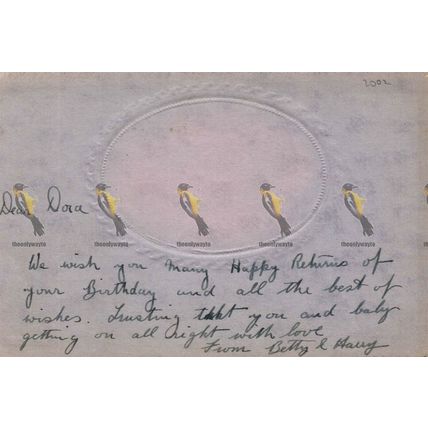 2002
Dear Dora
theonlywayto theonlywayto theonlywayto theonlywayto theonlywayto
We wish you Many Happy Returns of
your Birthday and all the best of
wishes. Trusting that you and baby
getting on all right with love
From Betty & Harry